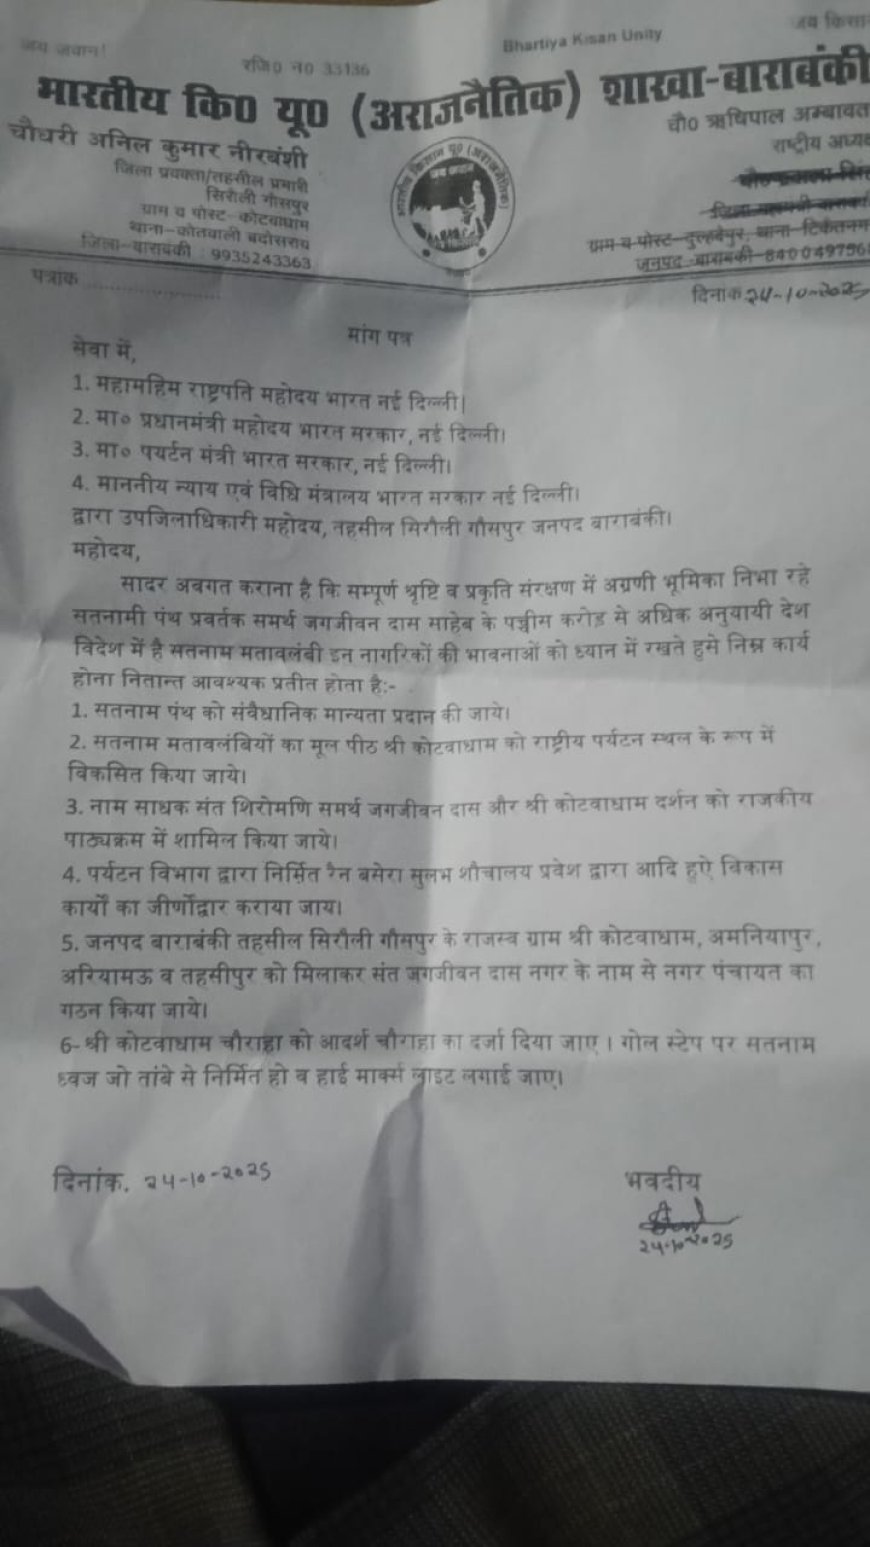 जय जवान!
जय किसान
रजि0 न0 33136
Bhartiya Kisan Unity
भारतीय कि0 यू0 (अराजनैतिक) शाखा-बाराबंकी
चौधरी अनिल कुमार नीरबंशी
जिला प्रवक्ता/तहसील प्रभारी
सिरौली गौसपुर
ग्राम व पोस्ट-कोटवाधाम
थाना-कोतवाली बदोसराय
जिला-बाराबंकी : 9935243363
चौ0 ऋषिपाल अम्बावत
राष्ट्रीय अध्यक्ष
ग्राम व पोस्ट-दुल्हदेपुर, थाना-टिकैतनगर
जनपद बाराबंकी-840049796
पत्रांक....................
दिनांक 24-10-2025
मांग पत्र
सेवा में,
1. महामहिम राष्ट्रपति महोदय भारत नई दिल्ली|
2. मा० प्रधानमंत्री महोदय भारत सरकार, नई दिल्ली।
3. मा० पयर्टन मंत्री भारत सरकार, नई दिल्ली।
4. माननीय न्याय एवं विधि मंत्रालय भारत सरकार नई दिल्ली।
द्वारा उपजिलाधिकारी महोदय, तहसील सिरौली गौसपुर जनपद बाराबंकी।
महोदय,
सादर अवगत कराना है कि सम्पूर्ण श्रृष्टि व प्रकृति संरक्षण में अग्रणी भूमिका निभा रहे
सतनामी पंथ प्रवर्तक समर्थ जगजीवन दास साहेब के पच्चीस करोड़ से अधिक अनुयायी देश
विदेश में है सतनाम मतावलंबी इन नागरिकों की भावनाओं को ध्यान में रखते हुसे निम्न कार्य
होना नितान्त आवश्यक प्रतीत होता है:-
1. सतनाम पंथ को संवैधानिक मान्यता प्रदान की जाये।
2. सतनाम मतावलंबियों का मूल पीठ श्री कोटवाधाम को राष्ट्रीय पर्यटन स्थल के रूप में
विकसित किया जाये।
3. नाम साधक संत शिरोमणि समर्थ जगजीवन दास और श्री कोटवाधाम दर्शन को राजकीय
पाठ्यक्रम में शामिल किया जाये।
4. पर्यटन विभाग द्वारा निर्मित रैन बसेरा सुलभ शौचालय प्रवेश द्वारा आदि हुऐ विकास
कार्यों का जीर्णोद्वार कराया जाय।
5. जनपद बाराबंकी तहसील सिरौली गौसपुर के राजस्व ग्राम श्री कोटवाधाम, अमनियापुर,
अरियामऊ व तहसीपुर को मिलाकर संत जगजीवन दास नगर के नाम से नगर पंचायत का
गठन किया जाये।
6- श्री कोटवाधाम चौराहा को आदर्श चौराहा का दर्जा दिया जाए । गोल स्टेप पर सतनाम
ध्वज जो तांबे से निर्मित हो व हाई मार्क्स लाइट लगाई जाए।
दिनांक. 24-10-2025
भवदीय
24-10-2025